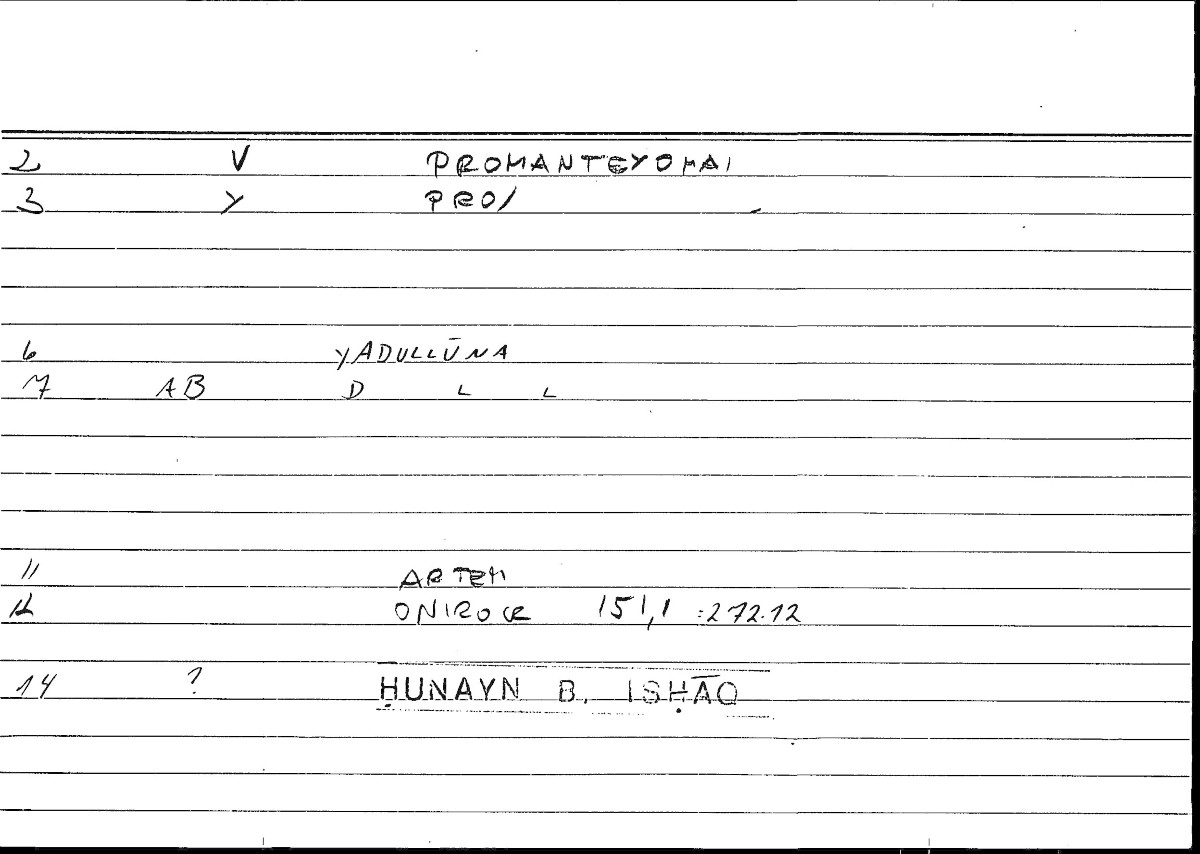 2 V PROMANTEYOMAI
3 Y PRO/
6 YADULLŪNA
7 AB D L L
11 ARTEM
12 ONIROCR 151,1 :272.12
14 ? ḤUNAYN B. ISḤĀQ